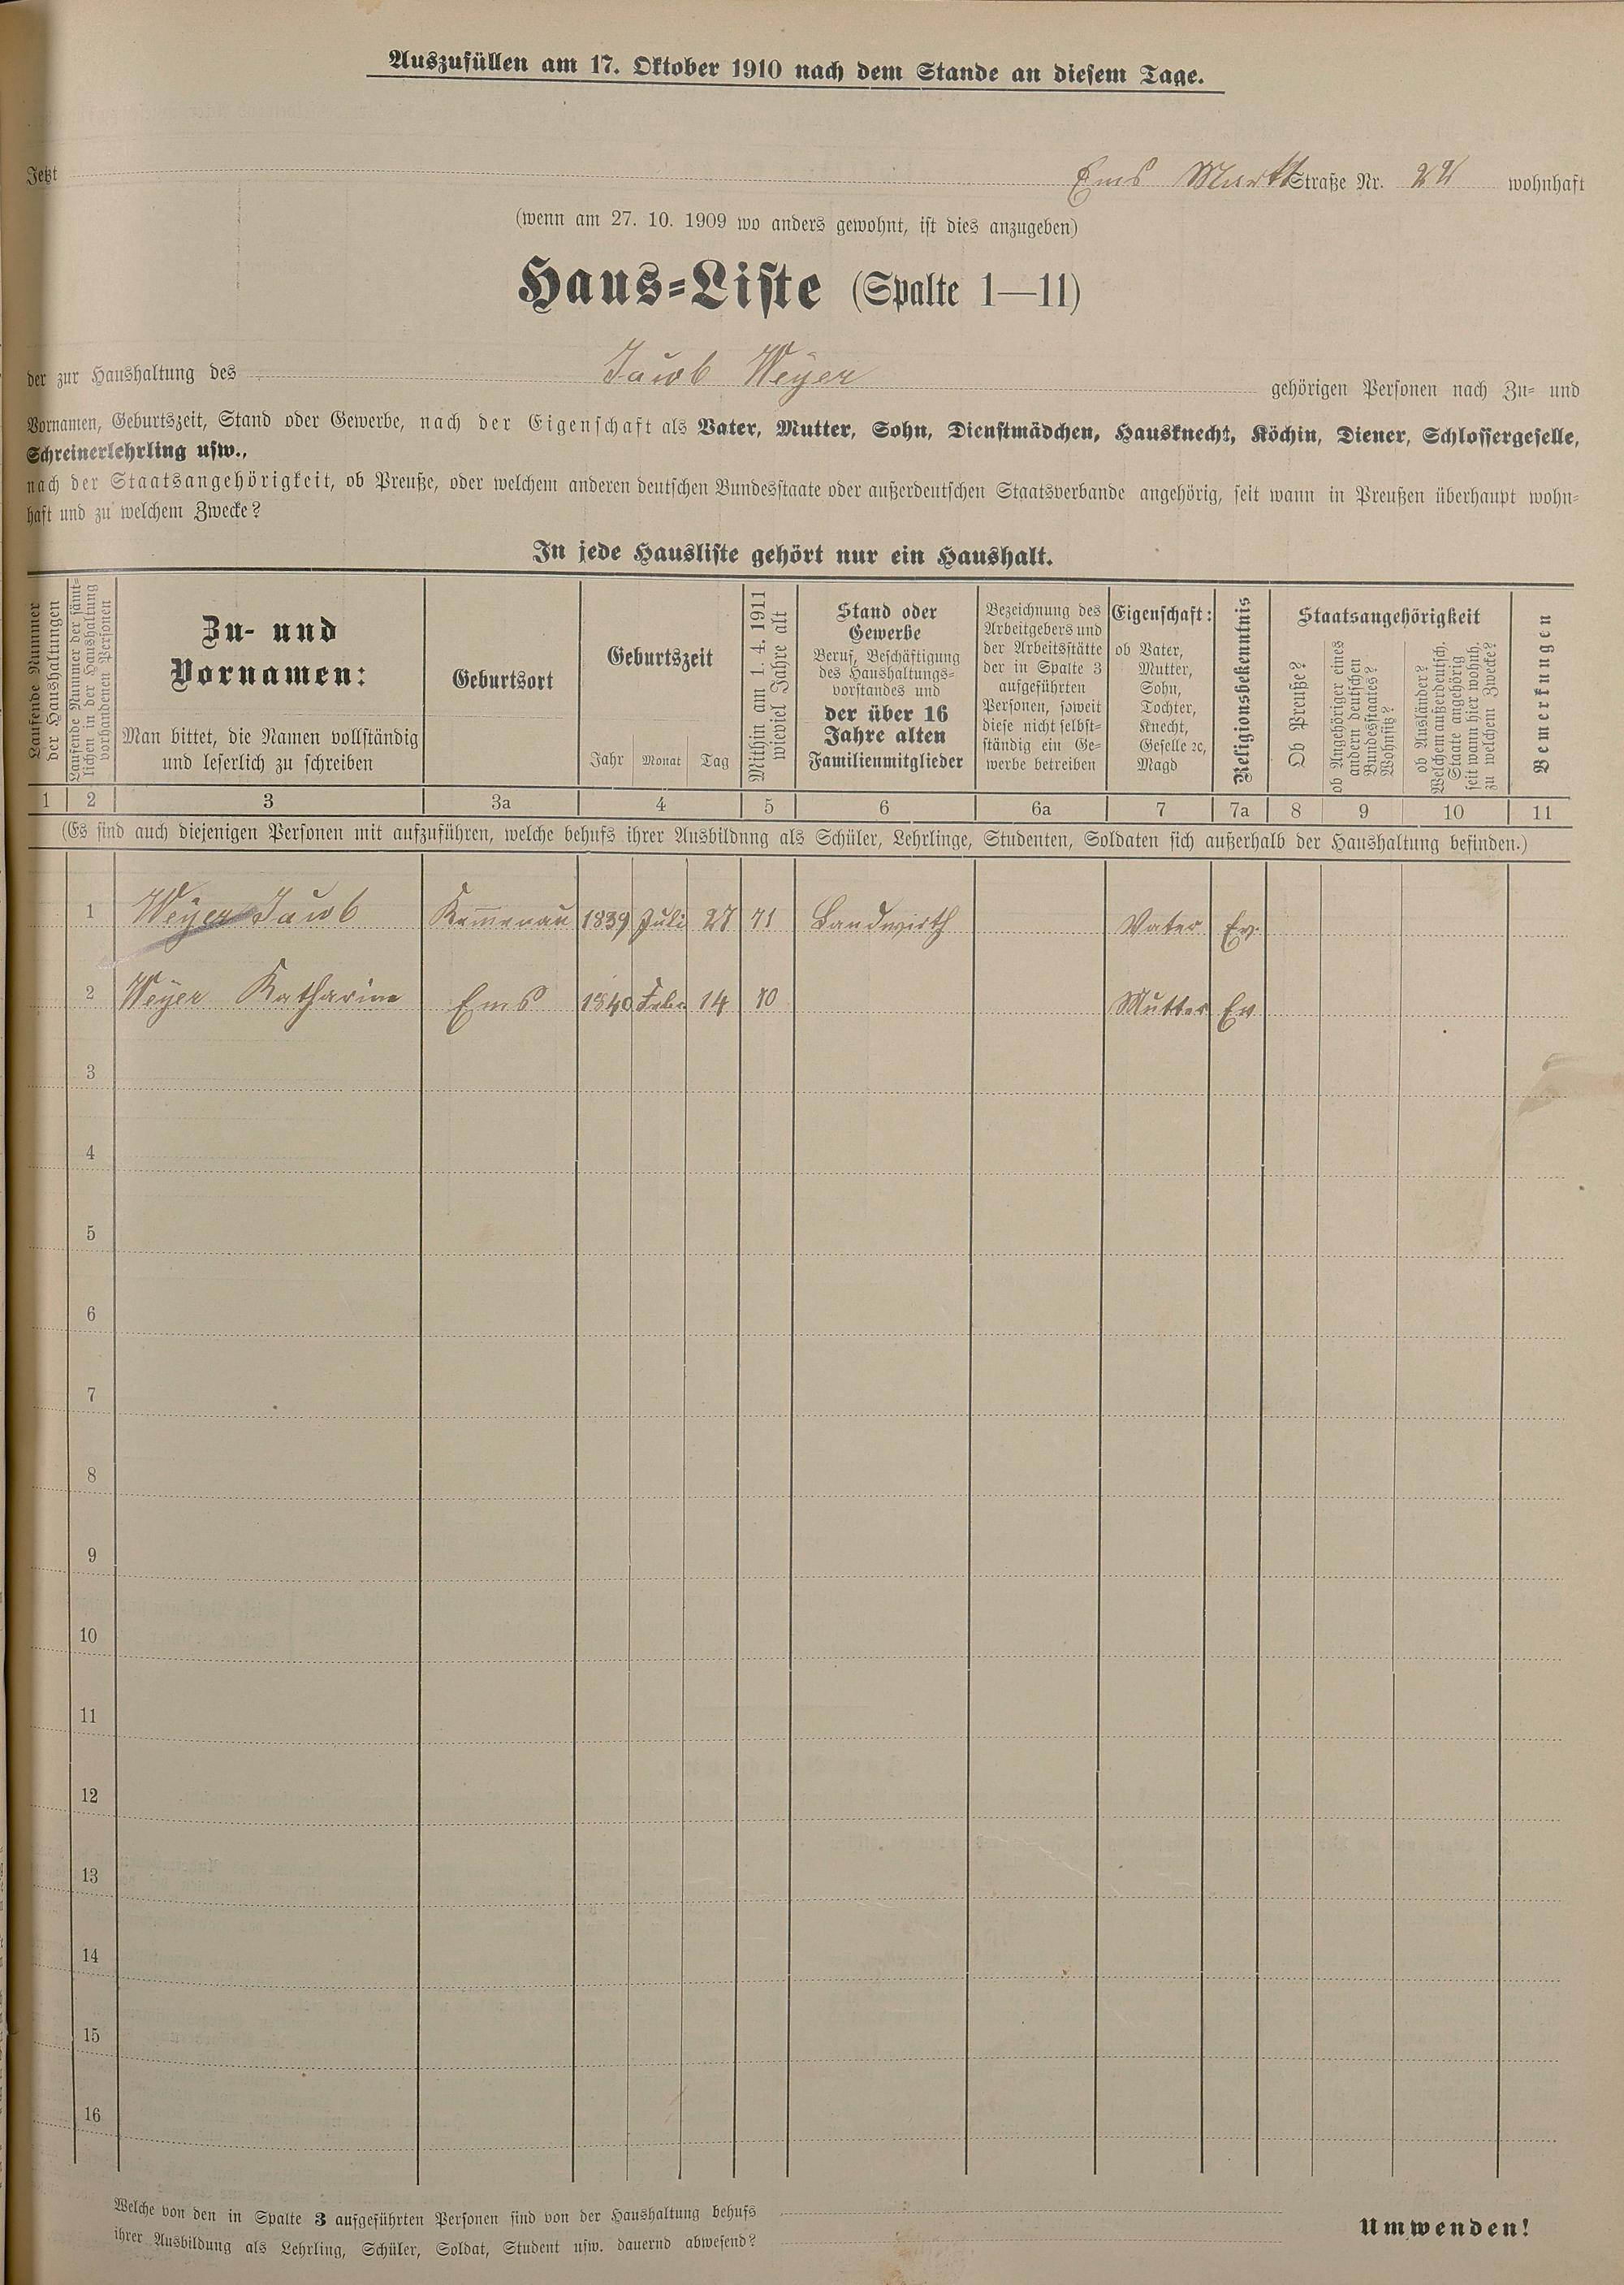 Auszufüllen am 17. Oktober 1910 nach dem Stande an diesem Tage.
Jetzt Ems Markt Straße Nr. 22 wohnhaft
(wenn am 27. 10. 1909 wo anders gewohnt, ist dies anzugeben)
Haus-Liste (Spalte 1—11)
der zur Haushaltung des Jacob Weyer gehörigen Personen nach Zu- und
Vornamen, Geburtszeit, Stand oder Gewerbe, nach der Eigenschaft als Vater, Mutter, Sohn, Dienstmädchen, Hausknecht, Köchin, Diener, Schlossergeselle,
Schreinerlehrling usw.,
nach der Staatsangehörigkeit, ob Preuße, oder welchem anderen deutschen Bundesstaate oder außerdeutschen Staatsverbande angehörig, seit wann in Preußen überhaupt wohn-
haft und zu welchem Zwecke?
In jede Hausliste gehört nur ein Haushalt.
Laufende Nummer
der Haushaltungen
Laufende Nummer der sämt-
lichen in der Haushaltung
vorhandenen Personen
Zu- und
Vornamen:
Man bittet, die Namen vollständig
und leserlich zu schreiben
Geburtsort
Geburtszeit
Jahr Monat Tag
Mithin am 1. 4. 1911
wieviel Jahre alt
Stand oder
Gewerbe
Beruf, Beschäftigung
des Haushaltungs-
vorstandes und
der über 16
Jahre alten
Familienmitglieder
Bezeichnung des
Arbeitgebers und
der Arbeitsstätte
der in Spalte 3
aufgeführten
Personen, soweit
diese nicht selbst-
ständig ein Ge-
werbe betreiben
Eigenschaft:
ob Vater,
Mutter,
Sohn,
Tochter,
Knecht,
Geselle ꝛc,
Magd
Religionsbekenntnis
Staatsangehörigkeit
Ob Preuße?
ob Angehöriger eines
andern deutschen
Bundesstaates?
Wohnsitz?
ob Ausländer?
Welchem außerdeutsch.
Staate angehörig
seit wann hier wohnh.
zu welchem Zwecke?
Bemerkungen
1 2 3 3a 4 5 6 6a 7 7a 8 9 10 11
(Es sind auch diejenigen Personen mit aufzuführen, welche behufs ihrer Ausbildung als Schüler, Lehrlinge, Studenten, Soldaten sich außerhalb der Haushaltung befinden.)
1 Weyer Jacob Kem̅enau 1839 Juli 27 71 Landwirth Vater Ev.
2 Weyer Katharina Ems 1840 Febr 14 70 Mutter Ev
3
4
5
6
7
8
9
10
11
12
13
14
15
16
Welche von den in Spalte 3 aufgeführten Personen sind von der Haushaltung behufs
ihrer Ausbildung als Lehrling, Schüler, Soldat, Student usw. dauernd abwesend?
Umwenden!